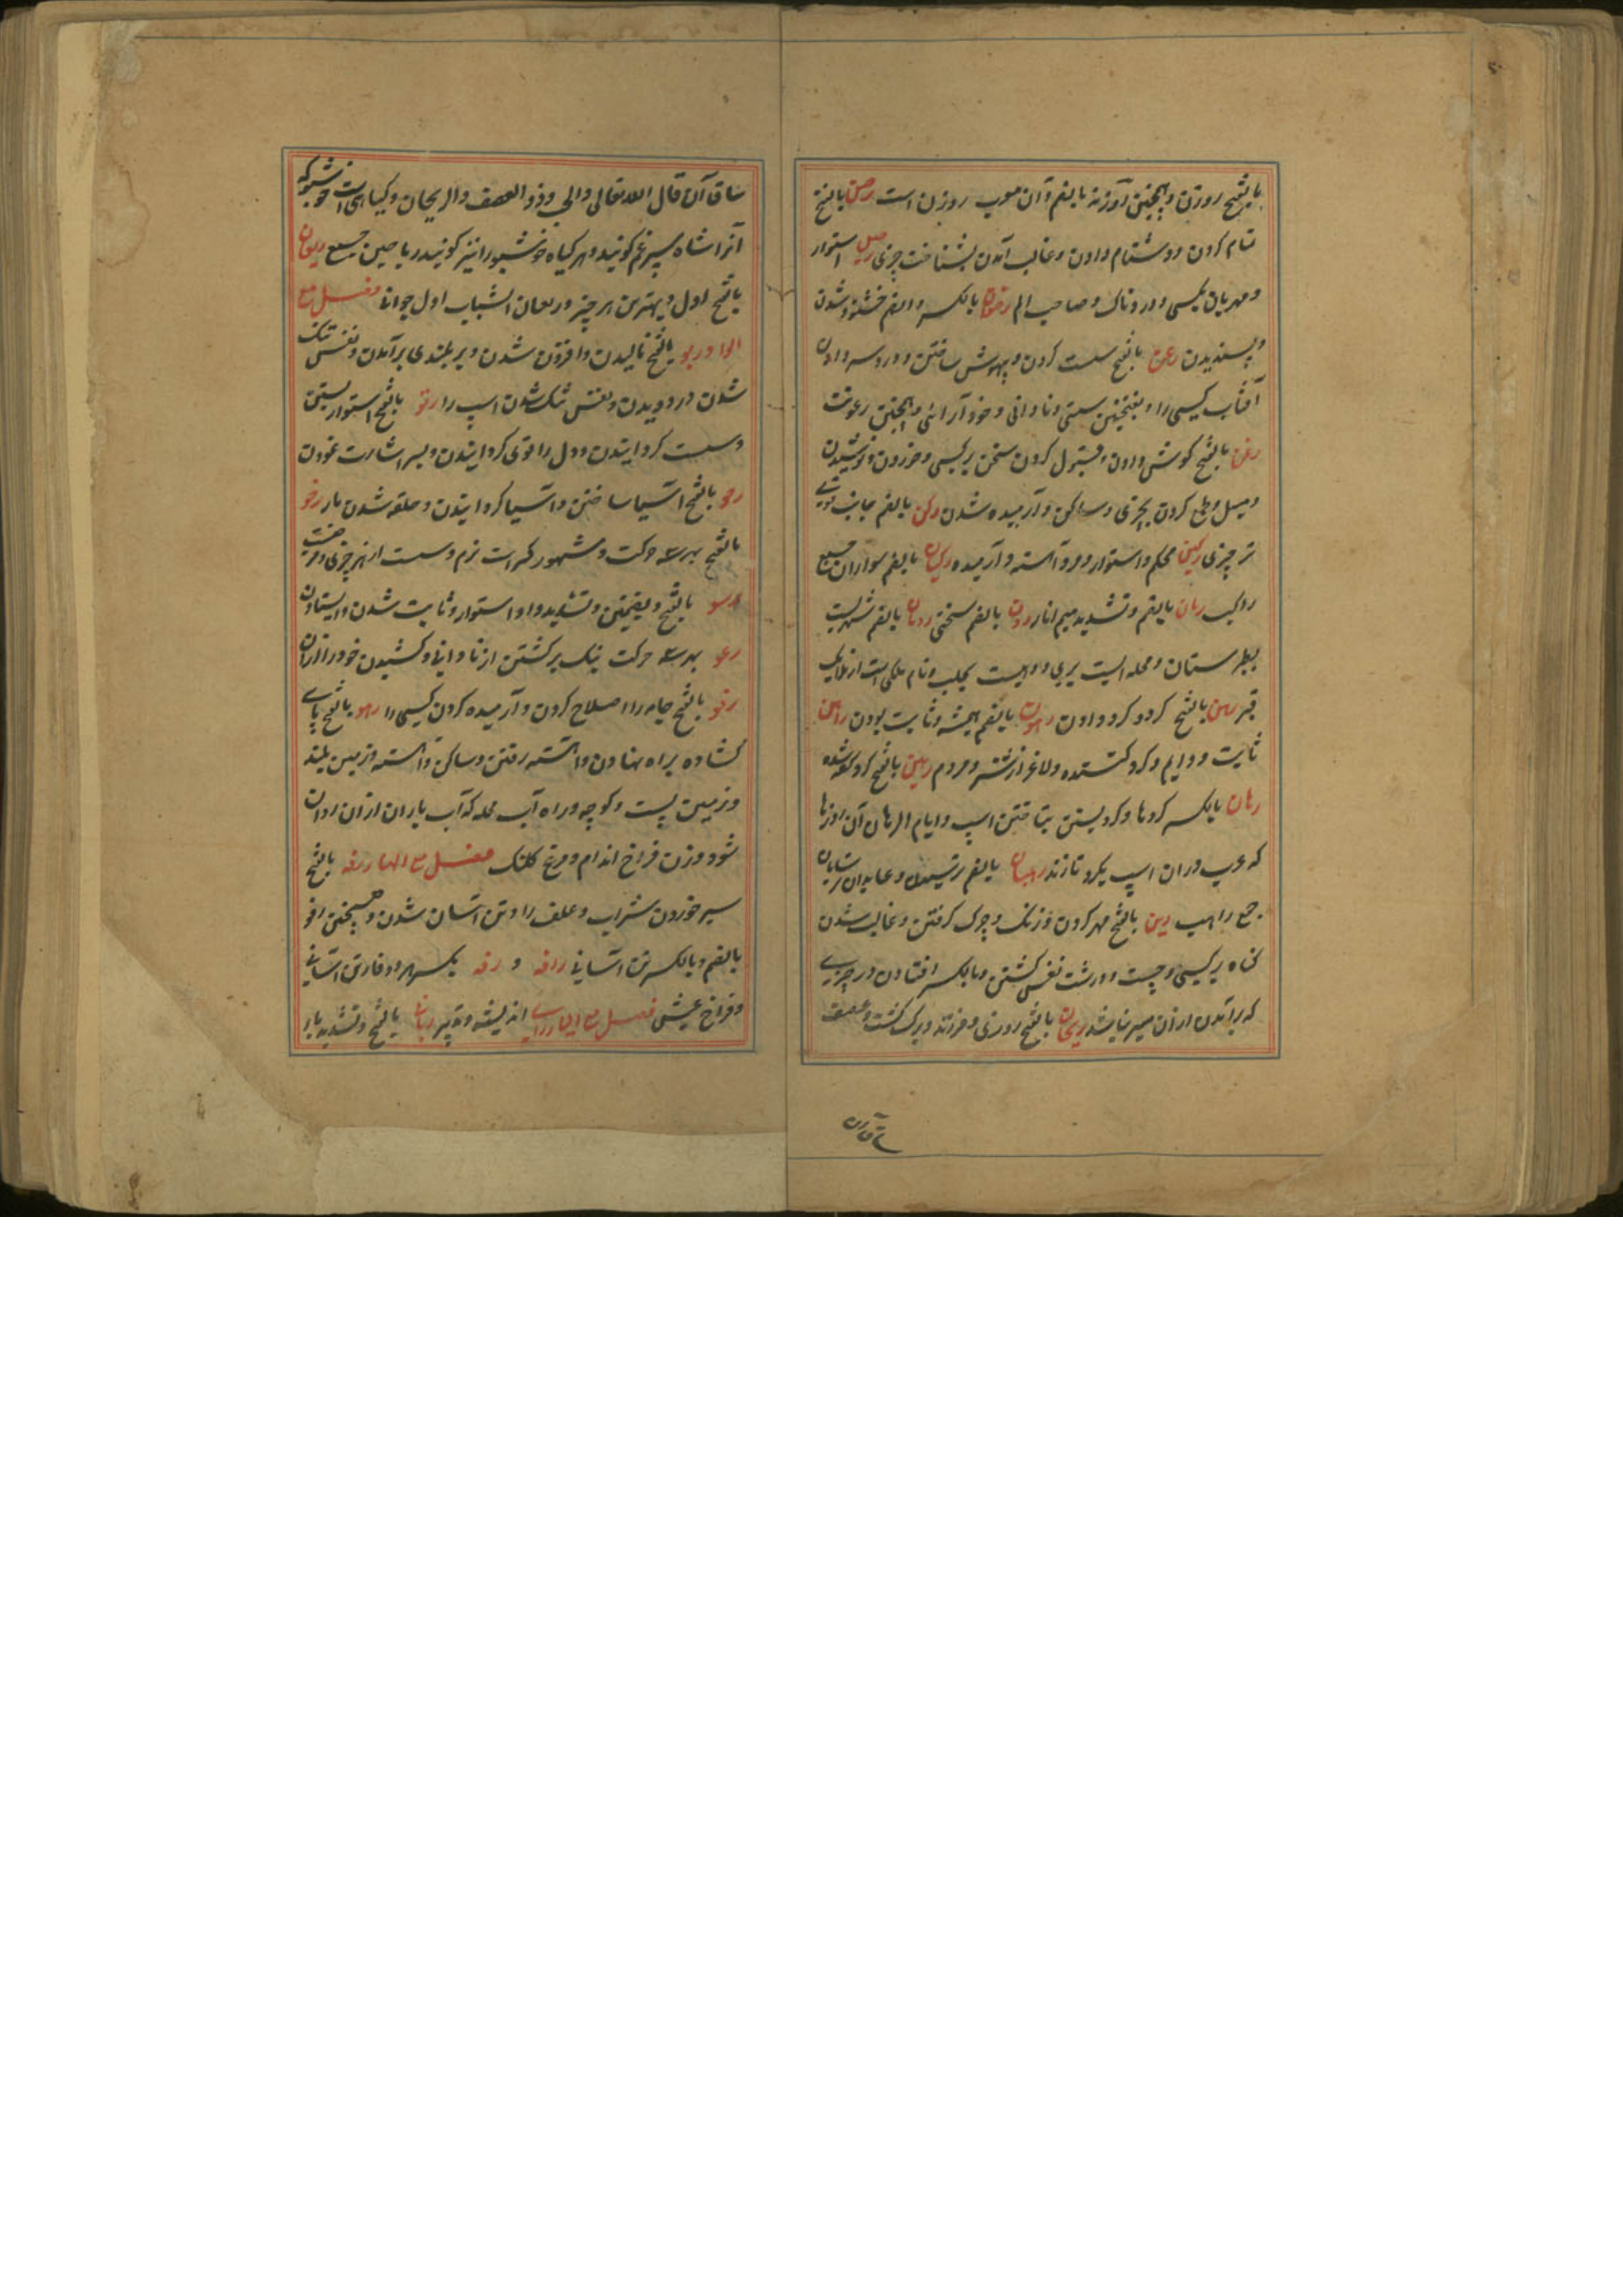 بالفتح روزن و همچنین روزنه بالضم و آن معرب روزن است رصن بالفتح
تمام کردن و دشنام دادن و غالب آمدن بشناخت چیزی رصین استوار
و مهربان بکسی و دردناک و صاحب الم رضوان بالکسر والضم خشنود شدن
و پسندیدن رعن بالفتح سست کردن و بیهوش ساختن و دردسر دادن
آفتاب کسی را و بفتحتین سستی و نادانی و خودآرائی و همچنین رعونت
رغن بالفتح گوش دادن و قبول کردن سخن بر کسی و خوردن و نوشیدن
و میل و طمع کردن بچیزی و ساکن و آرمیده شدن رکن بالضم جانب قوی
تر چیزی رکین محکم و استوار و مرد آهسته و آرمیده رکبان بالضم سواران جمع
راکب رمان بالضم و تشدید میم انار رون بالضم سختی رویان بالضم شهریست
بطبرستان و محله ایست بری و دهیست بحلب و نام ملکی است از ملایک
قبر رهن بالفتح گرو کردن و دادن رهون بالضم همیشه و ثابت بودن راهن
ثابت و دایم و گرو کننده و لاغر از شتر و مردم رهین بالفتح گرو کرده شده
رهان بالکسر گروها و گرو بستن بتاختن اسپ و ایام الرهان آن روزها
که عرب دران اسپ بگرو تازند رهبان بالضم ترسیدن و عابدان ترسایان
جمع راهب رین بالفتح مهر کردن و زنگ و چرک گرفتن و غالب شدن
گناه بر کسی و چست و درشت نفس گشتن و بالکسر افتادن در چیزی
که برآمدن ازان میسر نباشد ریحان بالفتح روزی و فرزند و برگ کشت و عصف
ساق آن
ساق آن قال الله تعالی والحب ذو العصف والریحان و گیاهی است خوشبو که
آنرا شاه سپرغم گویند و هر گیاه خوشبو را نیز گویند ریاحین جمع ریعان
بالفتح اول و بهترین هر چیز و ریعان الشباب اول جوانی فصل مع
الواو ربو بالفتح بالیدن و افزون شدن و بر بلندی برآمدن و نفس تنگ
شدن در دویدن و نفس تنگ شدن اسپ را رتو بالفتح استوار بستن
و سست گردانیدن و دل را قوی گردانیدن و بسر اشارت نمودن
رحو بالفتح آسیا ساختن و آسیا گردانیدن و حلقه شدن مار رخو
بالفتح بهر سه حرکت و مشهور کسر است نرم و سست از هر چیزی
رسو بالفتح و بضمتین و تشدید واو استوار و ثابت شدن و ایستادن
رعو بهر سه حرکت نیک برگشتن از نادانی و کشیدن خود را ازان
رفو بالفتح جامه را اصلاح کردن و آرمیده کردن کسی را رهو بالفتح پای
گشاده براه نهادن و آهسته رفتن و ساکن و آهسته و زمین بلند
و زمین پست و کوچه و راه آب محله که آب باران ازان روان
شود و زن فراخ اندام و مرغ کلنک فصل مع الهاء رفه بالفتح
سیر خوردن شراب و علف را و تن آسان شدن و همچنین رفو
بالضم و بالکسر تن آسانی رافه و رفه بکسر هر دو فا و تن آسانی
و فراخ عیشی فصل مع الیاء رای اندیشه و تدبیر ربانی بالفتح و تشدید با